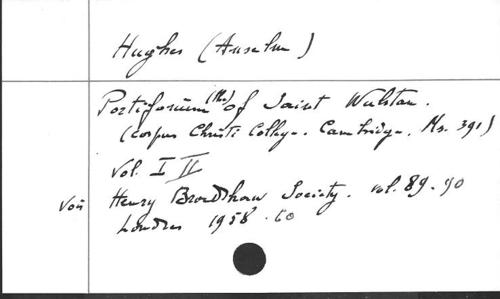 Hughes (Anselm)
Portiforium (The) of Saint Wulstan.
(Corpus Christi College. Cambridge. Ms. 391)
Vol. I II
Voir Henry Bradshaw Society. vol. 89-90
Londres 1958-60